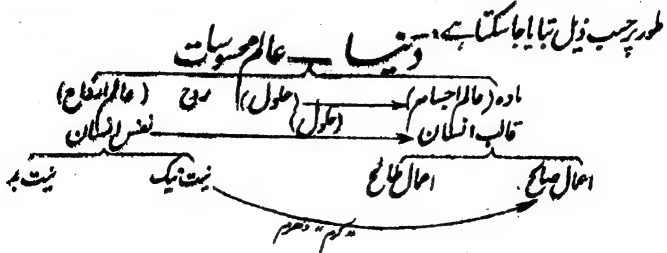 طور پر حسب ذیل بتایا جا سکتا ہے:
دنیا ــ عالم محسوسات
مادہ (عالم اجسام) (حلول) روح (عالم ارواح)
قالب انسان (حلول) نفس انسان
اعمال صالح اعمال طالح نیت نیک نیت بد
"کرم" دھرم